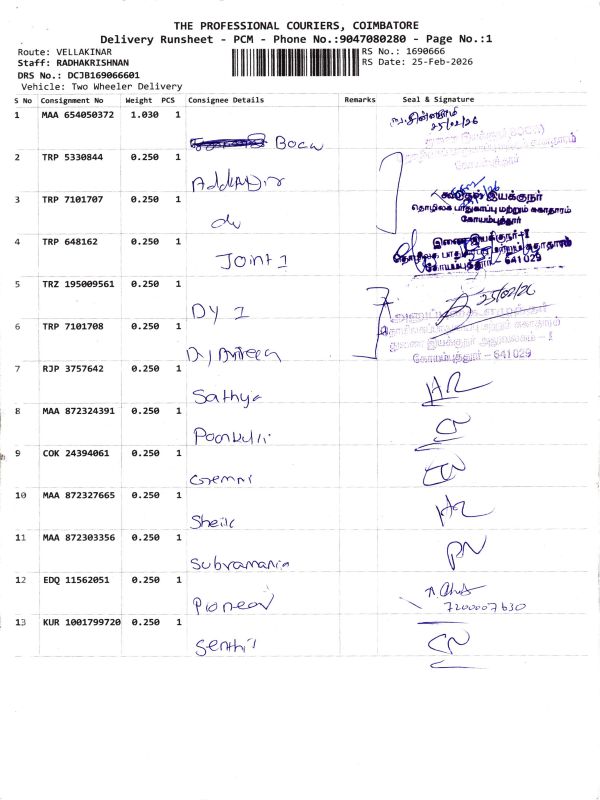 THE PROFESSIONAL COURIERS, COIMBATORE
Delivery Runsheet - PCM - Phone No.:9047080280 - Page No.:1
Route: VELLAKINAR
RS No.: 1690666
Staff: RADHAKRISHNAN
RS Date: 25-Feb-2026
DRS No.: DCJB169066601
Vehicle: Two Wheeler Delivery
S No Consignment No Weight PCS Consignee Details Remarks Seal & Signature
1 MAA 654050372 1.030 1 Bocw
25/02/26
கோயம்புத்தூர்
2 TRP 5330844 0.250 1
3 TRP 7101707 0.250 1
இயக்குநர்
தொழிலக பாதுகாப்பு மற்றும் சுகாதாரம்
கோயம்புத்தூர்
4 TRP 648162 0.250 1 Joint 1
இணை இயக்குநர்-I
கோயம்புத்தூர் - 641029
5 TRZ 195009561 0.250 1 DY 1
25/02/26
6 TRP 7101708 0.250 1
கோயம்புத்தூர் - 641029
7 RJP 3757642 0.250 1 Sathya
8 MAA 872324391 0.250 1
9 COK 24394061 0.250 1 Gemni
10 MAA 872327665 0.250 1
11 MAA 872303356 0.250 1 Subramania
12 EDQ 11562051 0.250 1 Pioneer
7200007630
13 KUR 1001799720 0.250 1 Senthil